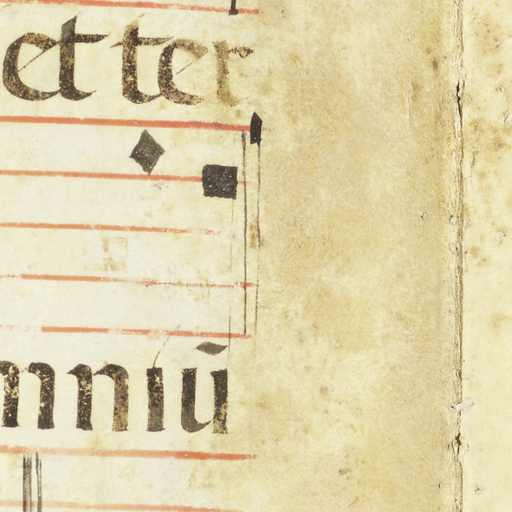 et ter
nniū